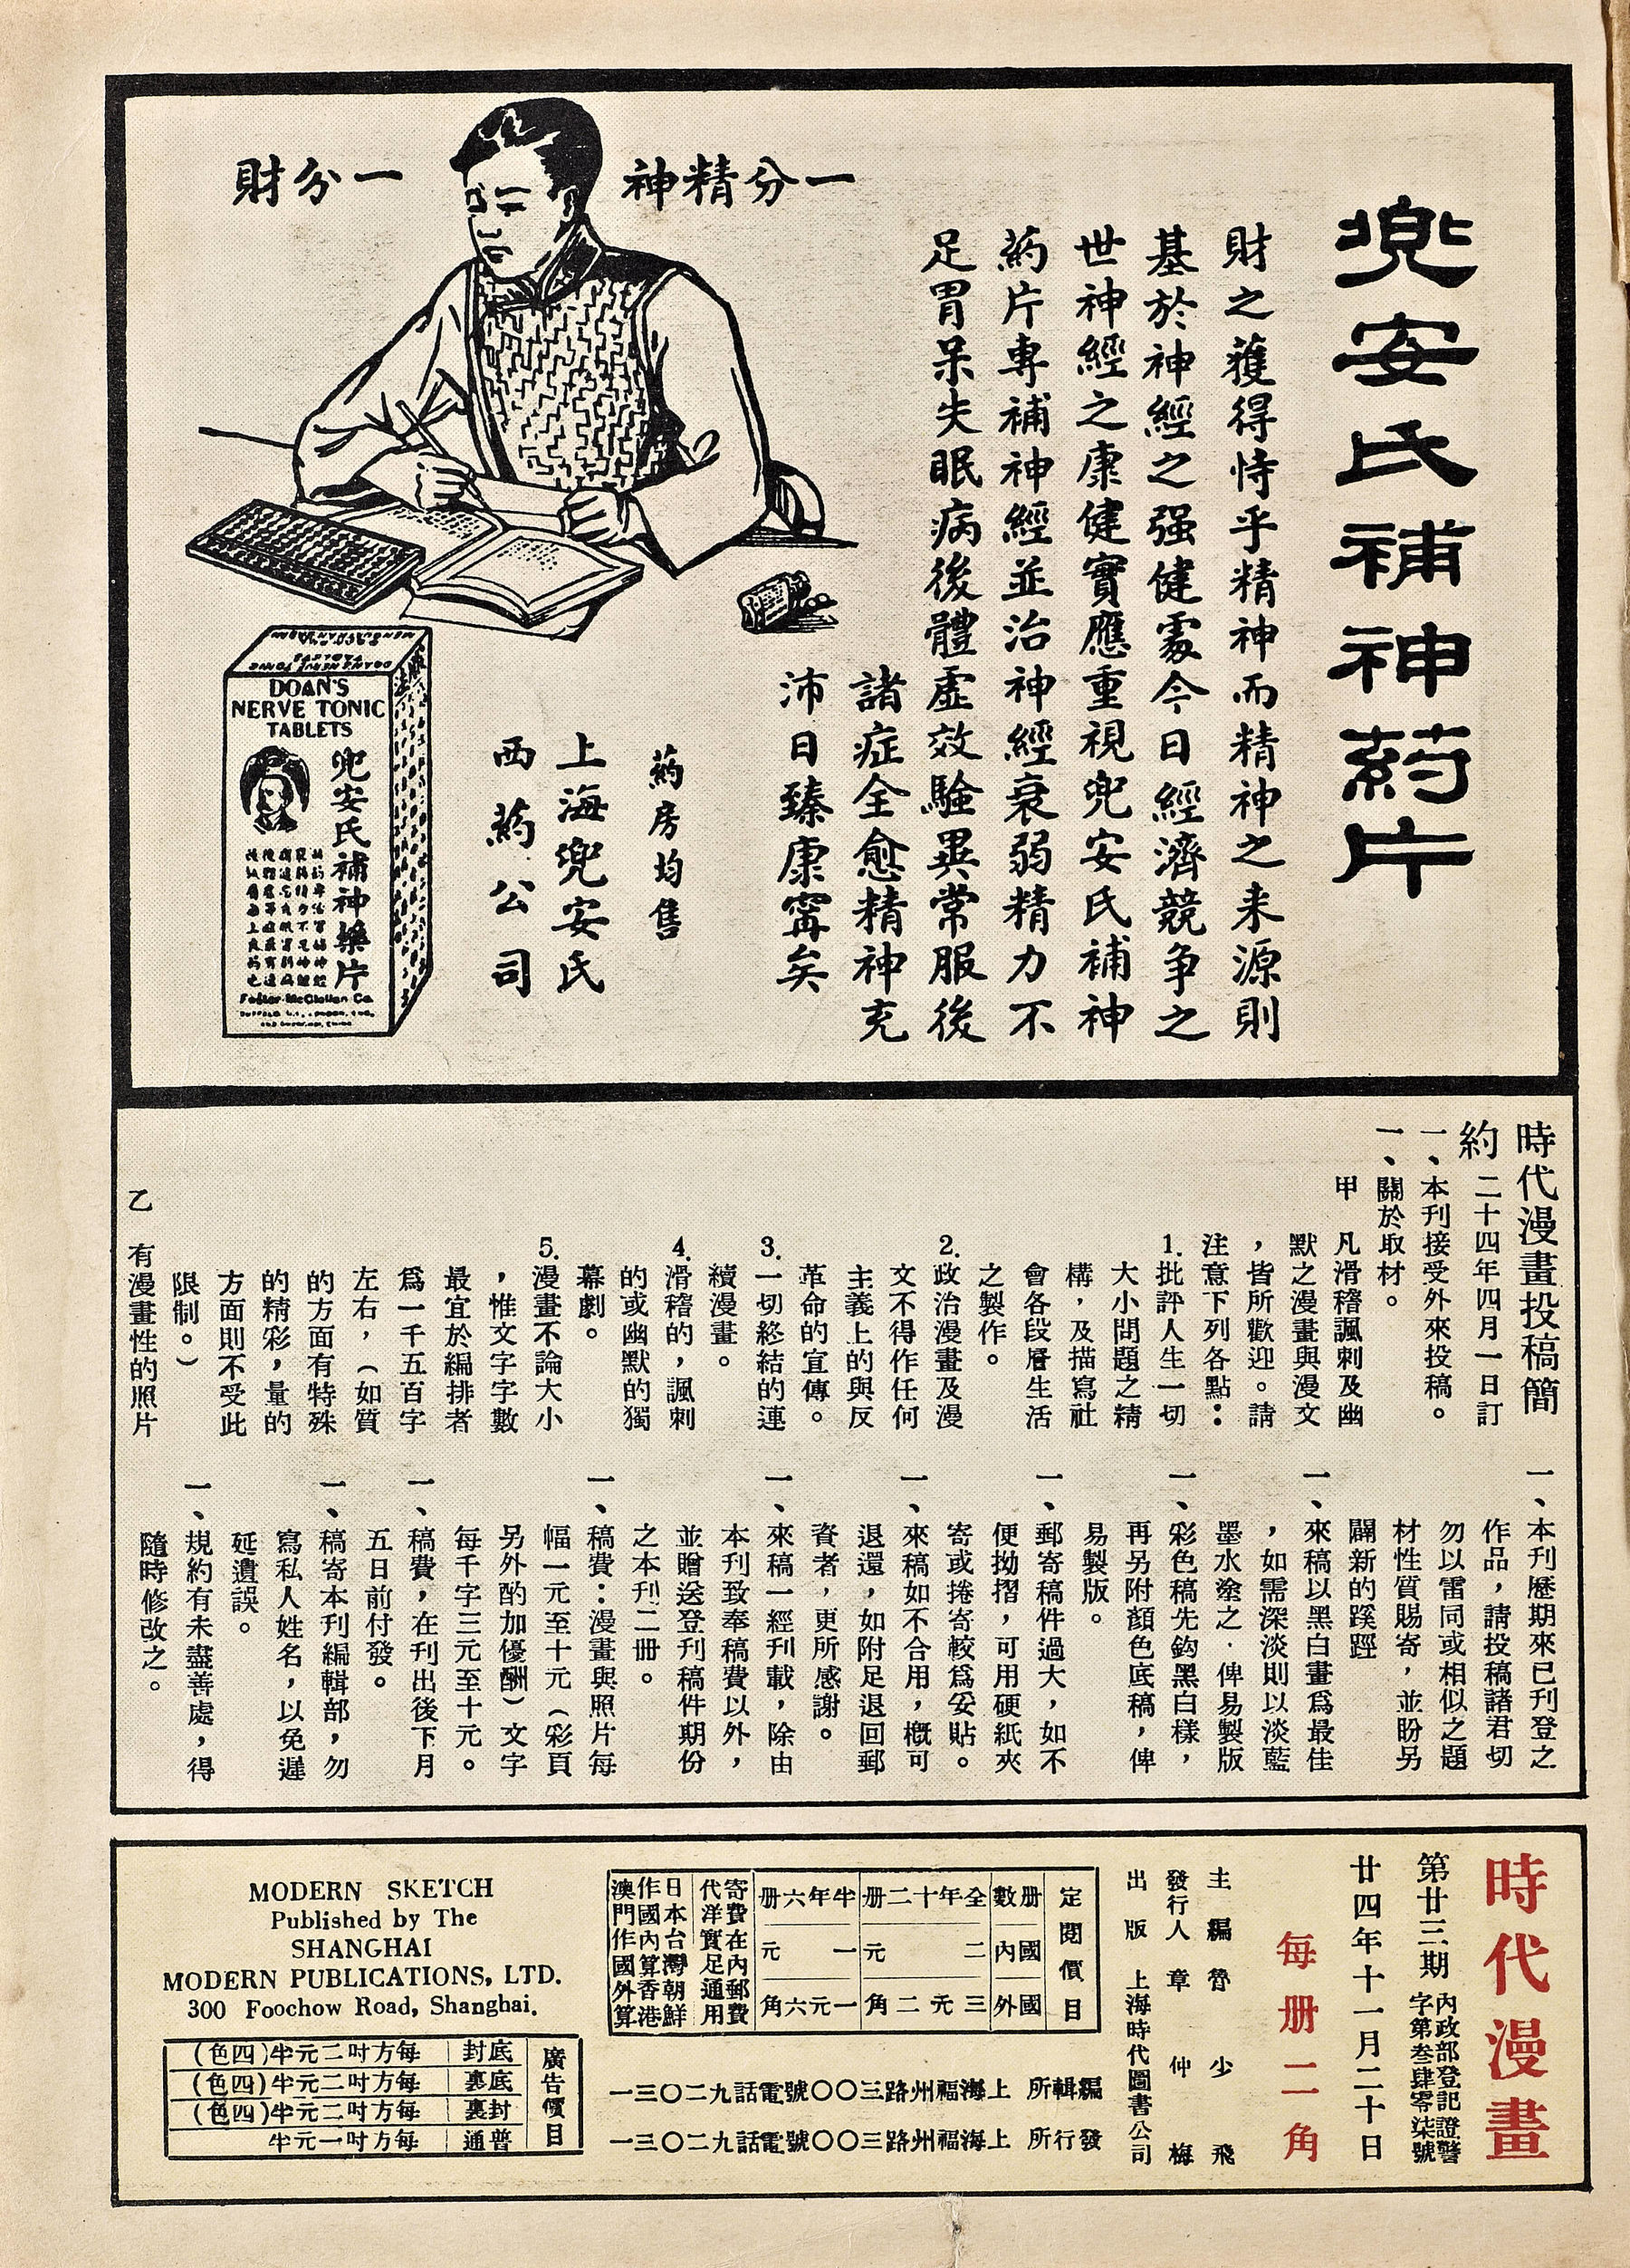 兜安氏補神葯片
財之獲得恃乎精神而精神之来源則
基於神經之强健處今日經濟競争之
世神經之康健實應重視兜安氏補神
葯片専補神經並治神經衰弱精力不
足胃呆失眠病後體虛效驗異常服後
諸症全愈精神充
沛日臻康寗矣
一分精神
一分財
葯房均售
上海兜安氏
西葯公司
DOAN'S
NERVE TONIC
TABLETS
兜安氏補神藥片
Foster-McClellan Co.
時代漫畫投稿簡
約 二十四年四月一日訂
一、本刊接受外來投稿。
一、關於取材。
甲 凡滑稽諷刺及幽
默之漫畫與漫文
，皆所歡迎。請
注意下列各點：
1.批評人生一切
大小問題之精
構，及描寫社
會各段層生活
之製作。
2.政治漫畫及漫
文不得作任何
主義上的與反
革命的宣傳。
3.一切終結的連
續漫畫。
4.滑稽的，諷刺
的或幽默的獨
幕劇。
5.漫畫不論大小
，惟文字字數
最宜於編排者
爲一千五百字
左右，（如質
的方面有特殊
的精彩，量的
方面則不受此
限制。）
乙 有漫畫性的照片
一、本刊歷期來已刊登之
作品，請投稿諸君切
勿以雷同或相似之題
材性質賜寄，並盼另
闢新的蹊踁
一、來稿以黑白畫爲最佳
，如需深淡則以淡藍
墨水塗之．俾易製版
一、彩色稿先鈎黑白樣，
再另附顏色底稿，俾
易製版。
一、郵寄稿件過大，如不
便拗摺，可用硬紙夾
寄或捲寄較爲妥貼。
一、來稿如不合用，概可
退還，如附足退回郵
資者，更所感謝。
一、來稿一經刊載，除由
本刊致奉稿費以外，
並贈送登刊稿件期份
之本刊二册。
一、稿費：漫畫與照片每
幅一元至十元（彩頁
另外酌加優酬）文字
每千字三元至十元。
一、稿費，在刊出後下月
五日前付發。
一、稿寄本刊編輯部，勿
寫私人姓名，以免遲
延遺誤。
一、規約有未盡善處，得
隨時修改之。
時代漫畫
第廿三期
內政部登記證警
字第叁肆零柒號
廿四年十一月二十日
每册二角
主編 魯少飛
發行人 章仲梅
出版 上海時代圖書公司
定閱價目
册數 國內 國外
全年十二册 二元 三元二角
半年六册 一元 一元六角
寄費在內郵費
代洋實足通用
日本台灣朝鮮
作國內算香港
澳門作國外算
編輯所 上海福州路三〇〇號電話九二〇三一
發行所 上海福州路三〇〇號電話九二〇三一
MODERN SKETCH
Published by The
SHANGHAI
MODERN PUBLICATIONS, LTD.
300 Foochow Road, Shanghai.
廣告價目
底封 每方吋二元半(四色)
底裏 每方吋二元半(四色)
封裏 每方吋二元半(四色)
普通 每方吋一元半